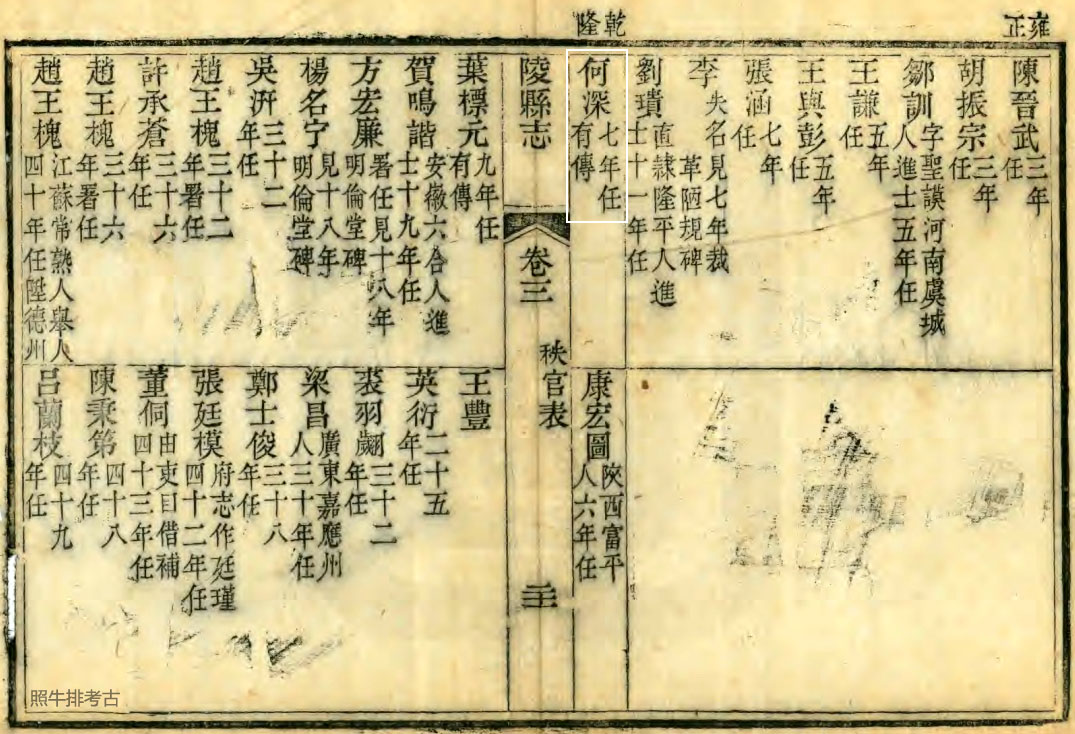 雍正
陳晉武 三年任
胡振宗 三年任
鄒訓 字聖謨河南虞城人進士五年任
王謙 五年任
王與彭 五年任
張涵 七年任
李 失名見七年裁革陋規碑
劉 直隸隆平人進士十一年任
乾隆
何深 七年任有傳
康宏圖 陝西富平人六年任
陵縣志 卷三 秩官表
葉標元 九年任有傳
賀鳴諧 安徽六合人進士十九年任
方宏廉 署任見十八年明倫堂碑
楊名宁 見十八年明倫堂碑
吳汧 三十二年任
趙王槐 三十二年署任
許承蒼 三十六年任
趙王槐 三十六年署任
趙王槐 江蘇常熟人舉人四十年任陞德州
王豐
英衍 二十五年任
裘羽翽 三十二年任
梁昌 廣東嘉應州人三十年任
鄭士俊 三十八年任
張廷模 府志作廷瑾四十二年任
董侗 由吏目借補四十三年任
陳秉第 四十八年任
呂蘭枝 四十九年任
照牛排考古